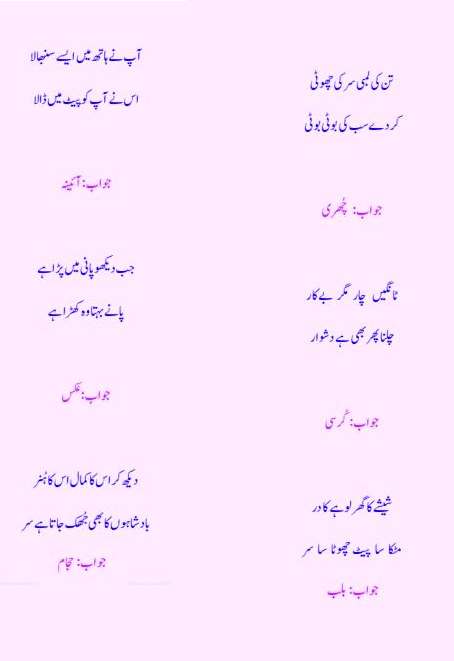 تن کی لمبی سر کی چھوٹی
کر دے سب کی بوٹی بوٹی
جواب: چُھری
ٹانگیں چار مگر بے کار
چلنا پھر بھی ہے دشوار
جواب: کُرسی
شیشے کا گھر لوہے کا در
مٹکا سا پیٹ چھوٹا سا سر
جواب: بلب
آپ نے ہاتھ میں ایسے سنبھالا
اس نے آپ کو پیٹ میں ڈالا
جواب: آئینہ
جب دیکھو پانی میں پڑا ہے
پانے بہتا وہ کھڑا ہے
جواب: عکس
دیکھ کر اس کا کمال اس کا ہُنر
بادشاہوں کا بھی جُھک جاتا ہے سر
جواب: حجام